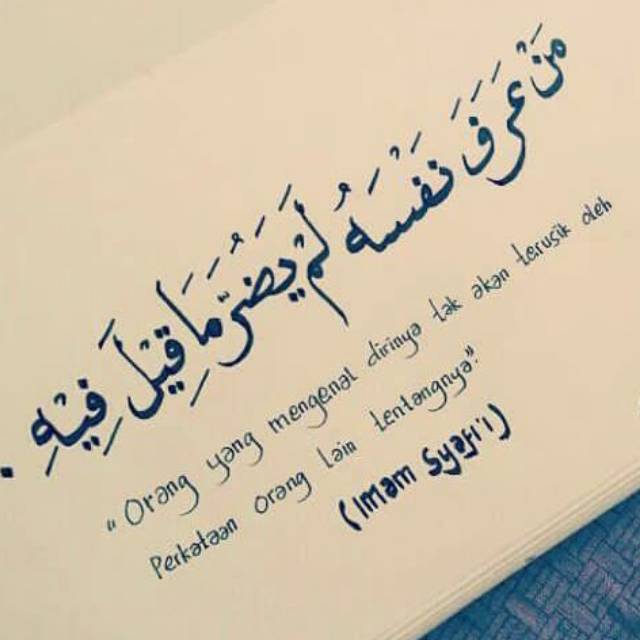 مَنْ عَرَفَ نَفْسَهُ لَمْ يَضُرَّ مَا قِيْلَ فِيْهِ .
"Orang yang mengenal dirinya tak akan terusik oleh
Perkataan orang lain tentangnya".
(Imam Syafi'i)